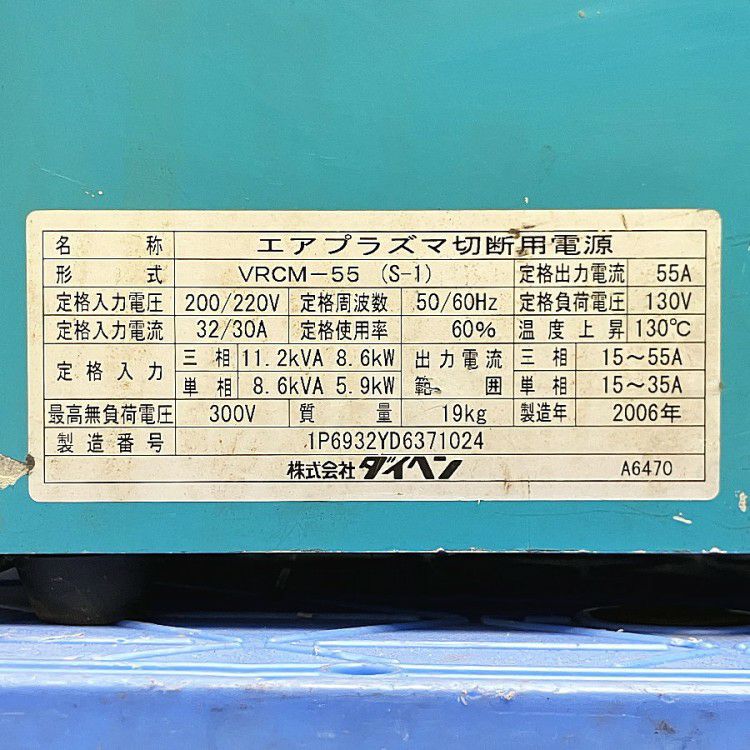 名称 エアプラズマ切断用電源
形式 VRCM-55 (S-1) 定格出力電流 55A
定格入力電圧 200/220V 定格周波数 50/60Hz 定格負荷電圧 130V
定格入力電流 32/30A 定格使用率 60% 温度上昇 130℃
定格入力 三相 11.2kVA 8.6kW 出力電流範囲 三相 15～55A
単相 8.6kVA 5.9kW 単相 15～35A
最高無負荷電圧 300V 質量 19kg 製造年 2006年
製造番号 1P6932YD6371024
株式会社ダイヘン A6470